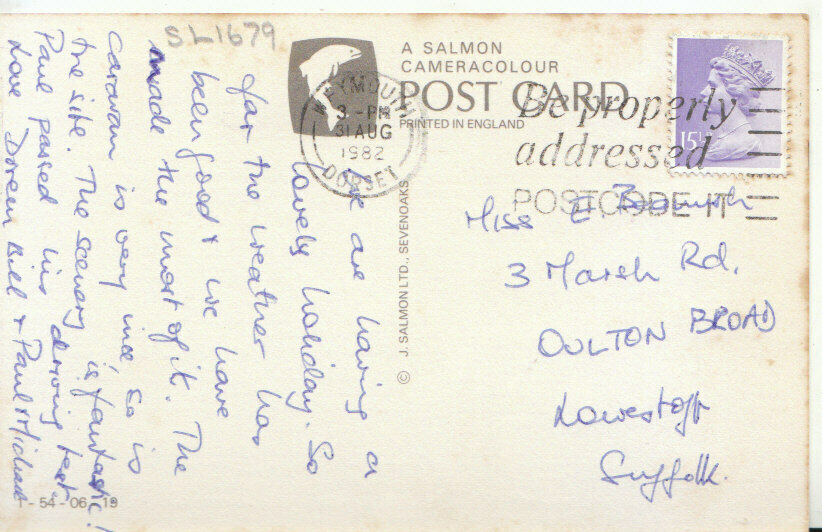 SL1679
A SALMON
CAMERACOLOUR
POST CARD
PRINTED IN ENGLAND
WEYMOUTH
3 - PM
31 AUG
1982
DORSET
Be properly
addressed
POSTCODE IT
15P
We are having a
lovely holiday. So
far the weather has
been good & we have
made the most of it. The
caravan is very nice, so is
the site. The scenery is fantastic!
Paul passed his driving test.
Love Doreen Bill & Paul & Michael
Miss E.
3 Marsh Rd.
OULTON BROAD
Lowestoft
Suffolk.
© J. SALMON LTD., SEVENOAKS
1-54-06-19